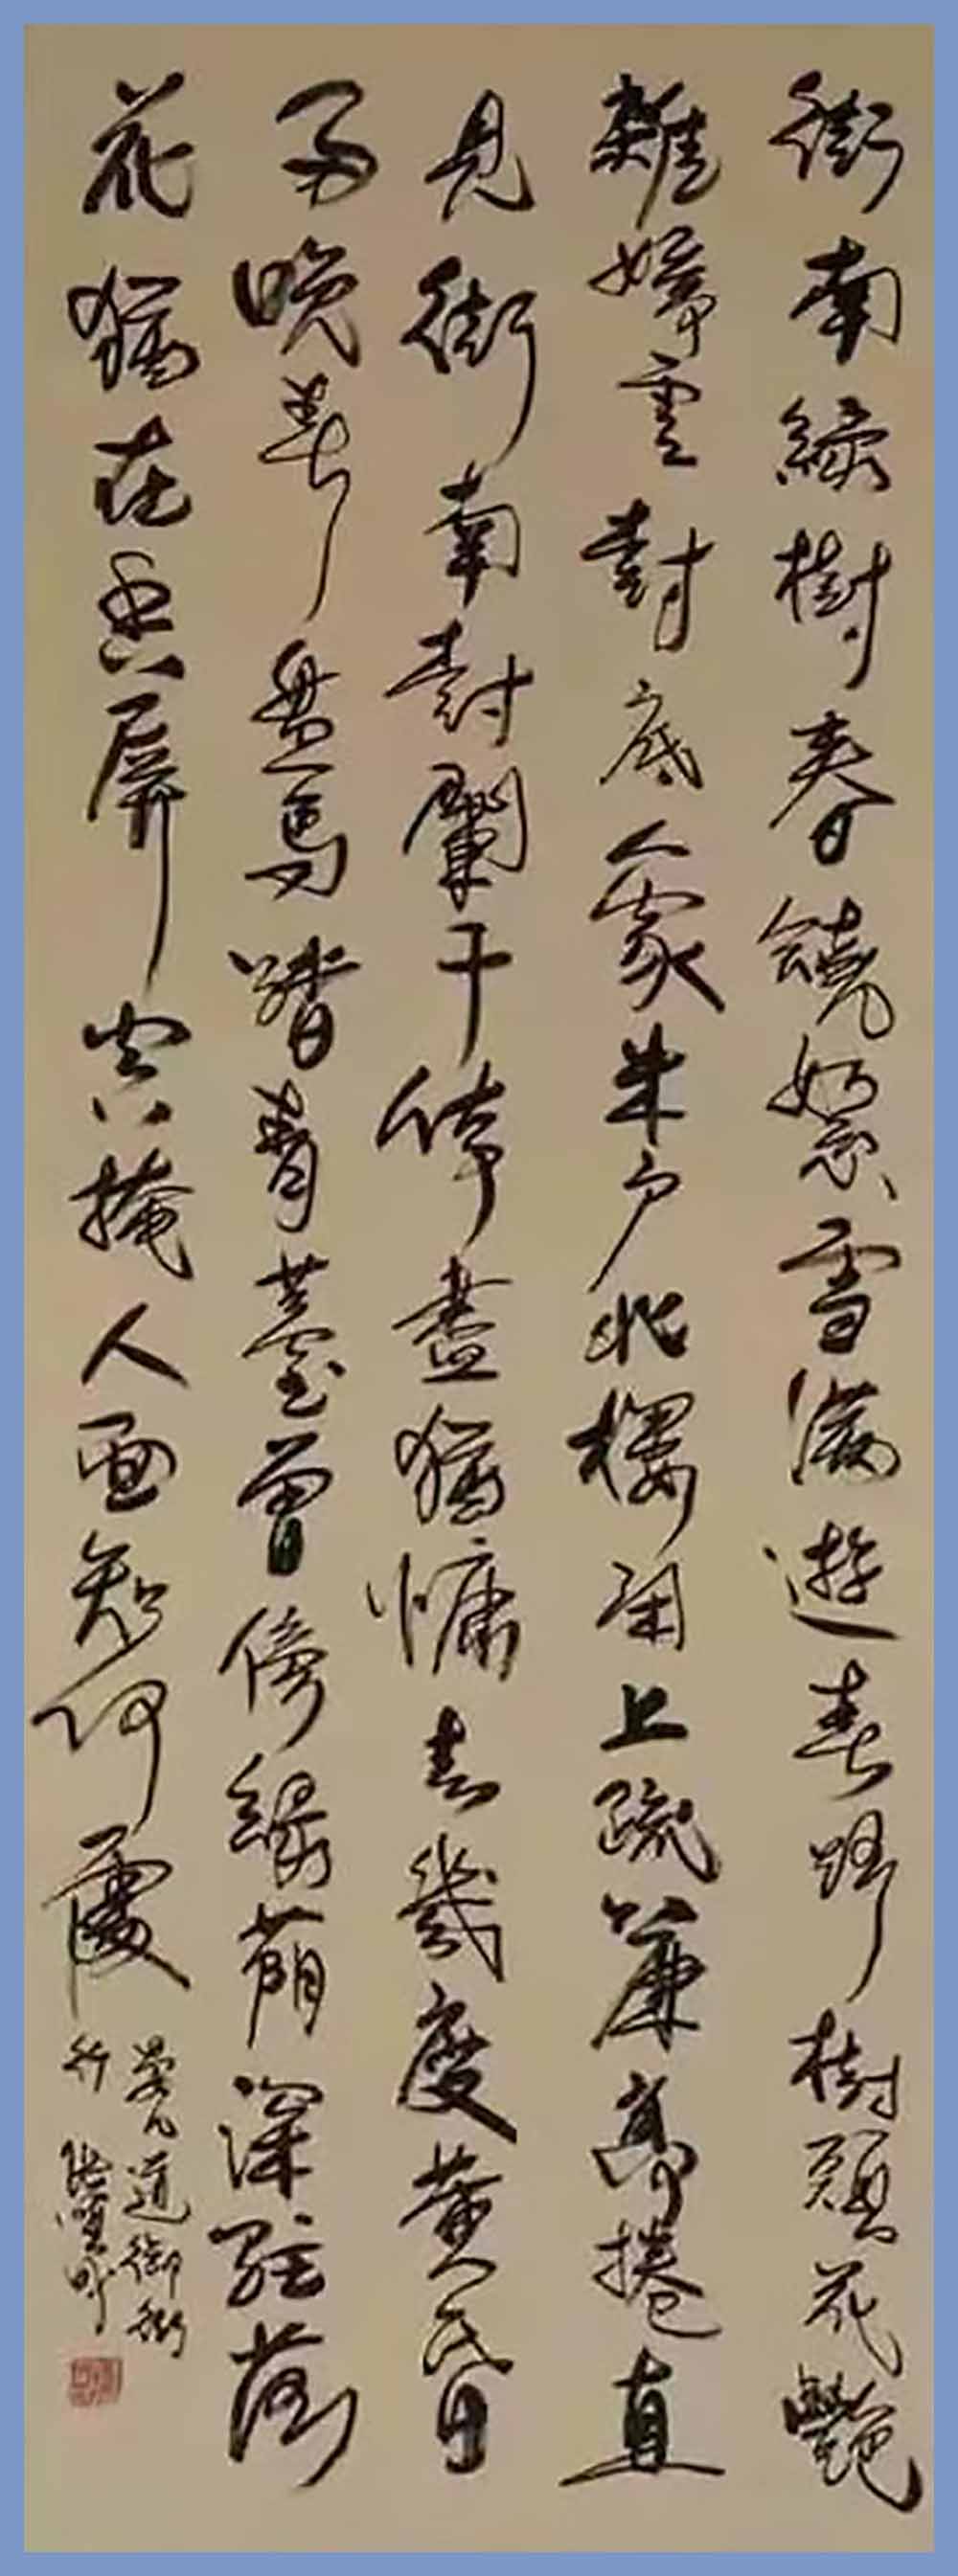 街南緑樹春饒絮雪滿遊春路樹頭花艷
雜嬌雲樹底人家朱户北樓閑上疏簾高捲直
見街南樹闌干倚盡猶慵去幾度黄昏
雨晚春盤馬踏青薹曾傍緑蔭深駐落
花猶在香屏空掩人面知何處
晏几道御街
行